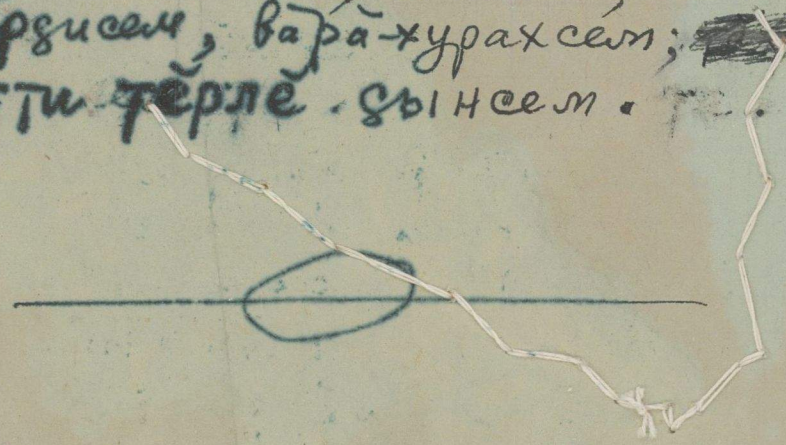 рҙисем, вӑрӑ-хурахсем;
ти тӗрлӗ ҙынсем.